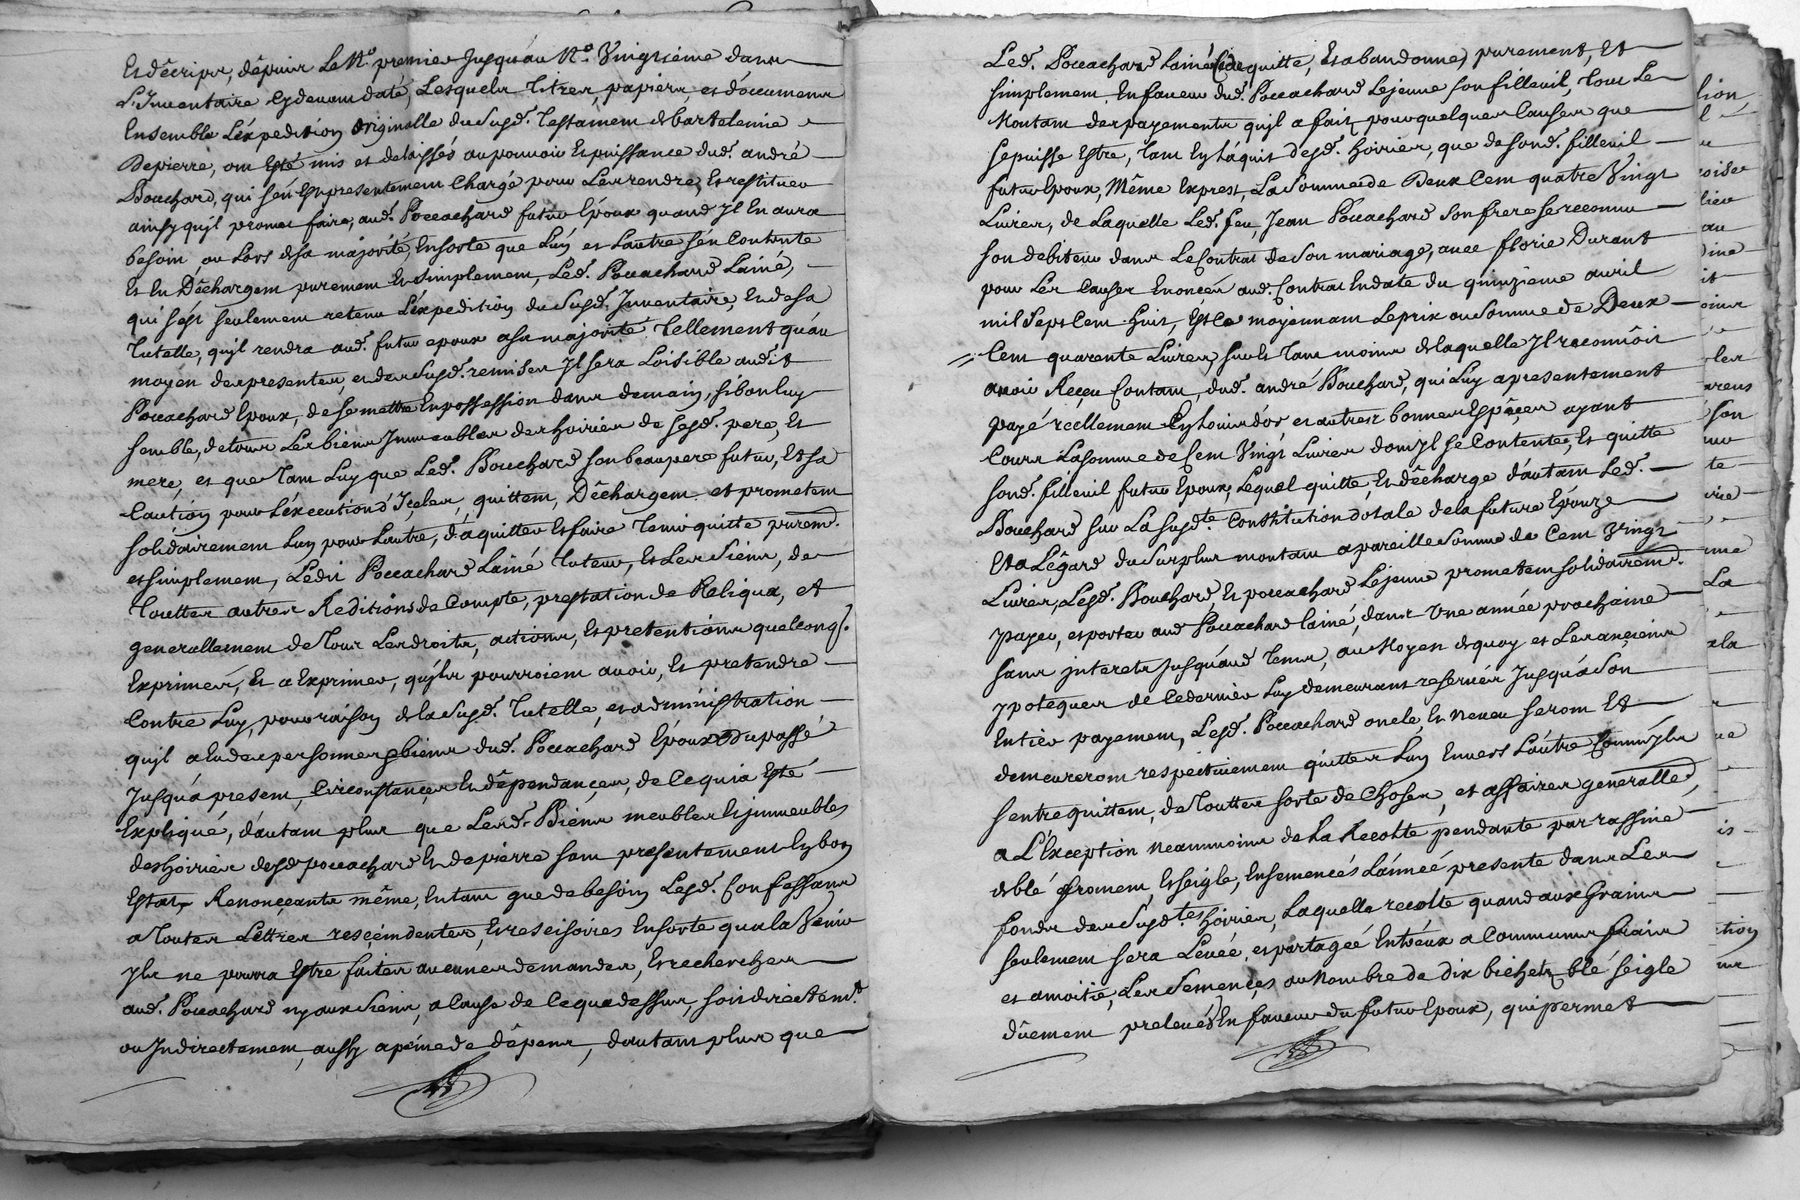 Et décripts, dépuis Le N.o premier Jusqu'au N.o Vingtiéme dans
L'Inventaire Cydevant daté, Lesquels Titres, papiers, et documents
Ensemble L'éxpedition originalle du Susd. Testament de bartelemie
Depierre, ont Esté mis et delaissés au pouvoir Et puissance dud. andré
Bouchard, qui s'en Est presentement Chargé pour Les rendre, Et restituer
ainsy qu'jl promet faire, aud. Poccachard futur Epoux quand Jl En aura
besoin, ou Lors de sa majorité, Ensorte que L'un et L'autre s'en Contente
Et En Déchargent purement Et simplement, Led. Poccachard Lainé,
qui s'est seulement retenu L'éxpedition du Susd. Jnventaire, En de sa
Tutelle, qu'jl rendra aud. futur epoux a sa majorité Tellement qu'au
moyen des presentes, et des Susd. remises Jl sera Loisible audit
Poccachard Epoux, de se mettre En possession dans demain, si bon luy
semble, de tous Les biens Jmmeubles des hoiries de sesd. pere, Et
mere, et que Tant Luy que Led. Bouchard son beaupere futur, Et sa
Caution pour L'éxecution d'Jceles, quittent, Déchargent et prometent
solidairement L'un pour L'autre, d'aquitter Et faire Tenir quitte purem.
et simplement, Ledit Poccachard Lainé Tuteur, Et Les Siens, de
Touttes autres Reditions de Compte, prestation de Reliqua, et
generallement de Tous Les droits, actions, Et pretentions quelconq.
Exprimés, Et a Exprimer, qu'jls pourroient avoir, Et pretendre
Contre Luy, pour raison de la Susd. Tutelle, et administration
qu'jl a Eu des personnes & biens dud. Poccachard Epoux Du passé
Jusqu'á present, Circonstances Et dépendances, de Ce qui a Esté
Expliqué, d'autant plus que Lesd. Biens meubles Et jmmeubles
des hoiries desd poccachard Et depierre sont presentement En bon
Estat, Renonçeants même, En tant que de besoin Lesd. Confessants
a Toutes Lettres resçindentes, Et rescisoires Ensorte qu'a la Venir
Jls ne pourra Estre faites aucunes demandes, Et recherches
aud. Poccachard ny aux Siens, a Cause de Ce que dessus, soit directem.t
ou Jndirectement, aussy a peine de dépens, d'autant plus que
Led. Poccachard Lainé Cede quitte, Et abandonne, purement, Et
simplement En faveur dud. Poccachard Lejeune son filleuil, Tout Le
Montant des payements qu'jl a fait pour quelques Causes que
se puisse Estre, Tant En L'áquit desd. hoiries, que de sond. filleuil
futur Epoux, Même Exprest, La Somme de Deux Cent quatre Vingt
Livres, de Laquelle Led. feu, Jean Poccachard Son frere se reconnu
son debiteur dans Le Contrat de Son mariage, avec florie Durant
pour Les Causes Enoncés aud. Contrat En date du quinziéme avril
mil Sept Cent huit, Et Ce moyennant Le prix ou Somme de Deux
Cent quarente Livres, sur Et Tant moins de laquelle Jl reconnôit
avoir Reçeu Contant, dud. andré Bouchard, qui Luy a presentement
payé reellement En Louis d'or et autres bonnes Espêçes ayant
Cours La somme de Cent Vingt Livres dont Jl se Contente, Et quitte
sond. filleuil futur Epoux, Lequel quitte, Et décharge d'autant Led.
Bouchard sur La susd.te Constitution dotale de la future Epouze
Et a L'égard du Surplus montant a pareille Somme de Cent Vingt
Livres, Lesd. Bouchard, Et poccachard Lejeune prometent solidairem.
payer, et porter aud Poccachard Lainé, dans Une année prochaine
sans interets Jusqu'audt Tems, au Moyen de quoy et Les anciens
ypoteques de Ce dernier Luy demeurants reservés Jusqu'a Son
Entier payement, Lesd. Poccachard oncle, Et Neveu seront Et
demeureront respectivement quittes L'un Envers L'autre Comm'jls
s'entrequittent, de Touttes sorte de Choses, et affaires generalle,
a L'Exception neammoins de La Recolte pendante par rassine
de blé froment, Et seigle, Ensemencés L'année presente dans Les
fonds des Susd.tes hoiries, Laquelle recolte quand aux Grains
seulement sera Levée, et partageé Entréux a Communs fraix
et amoitié, Les Semences au Nombre de dix bichets blé seigle
dûement prelevés En faveur du futur Epoux, qui permet